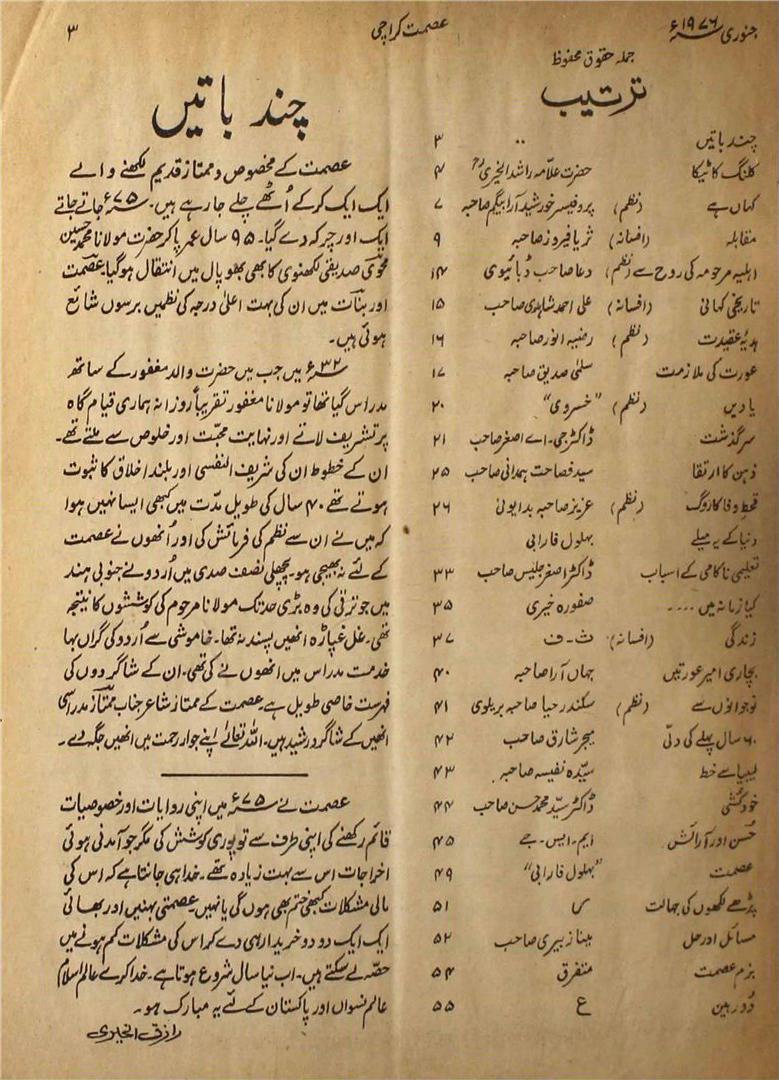 جنوری ۱۹۷۶ء
عصمت کراچی
۳
جملہ حقوق محفوظ
ترتیب
چند باتیں .. ۳
کلنک کا ٹیکا حضرت علامہ راشد الخیریؒ ۴
کہاں ہے (نظم) پروفیسر خورشید آرا بیگم صاحبہ ۷
مقابلہ (افسانہ) ثریا فیروز صاحبہ ۹
اہلیہ مرحومہ کی روح سے (نظم) دعا صاحب ڈبائیوی ۱۴
تاریخی کہانی (افسانہ) علی احمد شاہدی صاحب ۱۵
ہدیۂ عقیدت (نظم) رضیہ انور صاحبہ ۱۶
عورت کی ملازمت سلمیٰ صدیق صاحبہ ۱۷
یادیں (نظم) "خسروی" ۲۰
سرگذشت ڈاکٹر جی۔ اے اصغر صاحب ۲۱
ذہن کا ارتقا سید فصاحت ہمدانی صاحب ۲۵
قحط وفا کا روگ (نظم) عزیز صاحبہ بدایونی ۲۶
دنیا کے یہ میلے بہلول فارابی
تعلیمی ناکامی کے اسباب ڈاکٹر اصغر جلیس صاحب ۳۳
کیا زمانہ میں .... صفورہ خیری ۳۵
زندگی (افسانہ) ث۔ف ۳۷
بچاری امیر عورتیں جہاں آرا صاحبہ ۴۰
نوجوانوں سے (نظم) سکندر حیا صاحبہ بریلوی ۴۱
۶۰ سال پہلے کی دلّی میجر شارق صاحب ۴۲
لیبیا سے خط سیّدہ نفیسہ صاحبہ ۴۳
خودکشی ڈاکٹر سیّد محمد حسن صاحب ۴۴
حُسن اور آرائش ایم۔ایس۔جے ۴۵
عصمت "بہلول فارابی" ۴۹
پڑھے لکھوں کی جہالت ۵۱
مسائل اور حل مینا زبیری صاحب ۵۲
بزم عصمت متفرق ۵۴
دُوربین ع ۵۵
چند باتیں
عصمت کے مخصوص و ممتاز قدیم لکھنے والے
ایک ایک کر کے اُٹھے چلے جا رہے ہیں۔ ۷۵ء جاتے جاتے
ایک اور چرکہ دے گیا۔ ۹۵ سال عمر پا کر حضرت مولانا محمد حسین
محوی صدیقی لکھنوی کا بھی بھوپال میں انتقال ہوگیا۔ عصمت
اور بنات میں ان کی بہت اعلیٰ درجہ کی نظمیں برسوں شائع
ہوئی ہیں۔
۳۲ء میں جب میں حضرت والد مغفور کے ساتھ
مدراس گیا تھا تو مولانا مغفور تقریباً روزانہ ہماری قیام گاہ
پر تشریف لاتے اور نہایت محبت اور خلوص سے ملتے تھے۔
ان کے خطوط ان کی شریف النفسی اور بلند اخلاق کا ثبوت
ہوتے تھے۔ ۴۰ سال کی طویل مدت میں کبھی ایسا نہیں ہوا
کہ میں نے ان سے نظم کی فرمائش کی اور اُنھوں نے عصمت
کے لئے نہ بھیجی ہو۔ پچھلی نصف صدی میں اُردو نے جنوبی ہند
میں جو ترقی کی وہ بڑی حد تک مولانا مرحوم کی کوششوں کا نتیجہ
تھی۔ غل غپاڑہ انھیں پسند نہ تھا۔ خاموشی سے اُردو کی گراں بہا
خدمت مدراس میں انھوں نے کی تھی۔ ان کے شاگردوں کی
فہرست خاصی طویل ہے۔ عصمت کے ممتاز شاعر جناب ممتاز مدراسی
انھیں کے شاگرد رشید ہیں۔ اللہ تعالیٰ اپنے جوار رحمت میں انھیں جگہ دے۔
عصمت نے ۷۵ء میں اپنی روایات اور خصوصیات
قائم رکھنے کی اپنی طرف سے تو پوری کوشش کی مگر جو آمدنی ہوئی
اخراجات اس سے بہت زیادہ تھے۔ خدا ہی جانتا ہے کہ اس کی
مالی مشکلات کبھی ختم بھی ہوں گی یا نہیں۔ عصمتی بہنیں اور بھائی
ایک ایک دو دو خریدار ہی دے کر اس کی مشکلات کم ہونے میں
حصّہ لے سکتے ہیں۔ اب نیا سال شروع ہوتا ہے۔ خدا کرے عالم اسلام
عالم نسواں اور پاکستان کے لئے یہ مبارک ہو۔
رازق الخیری